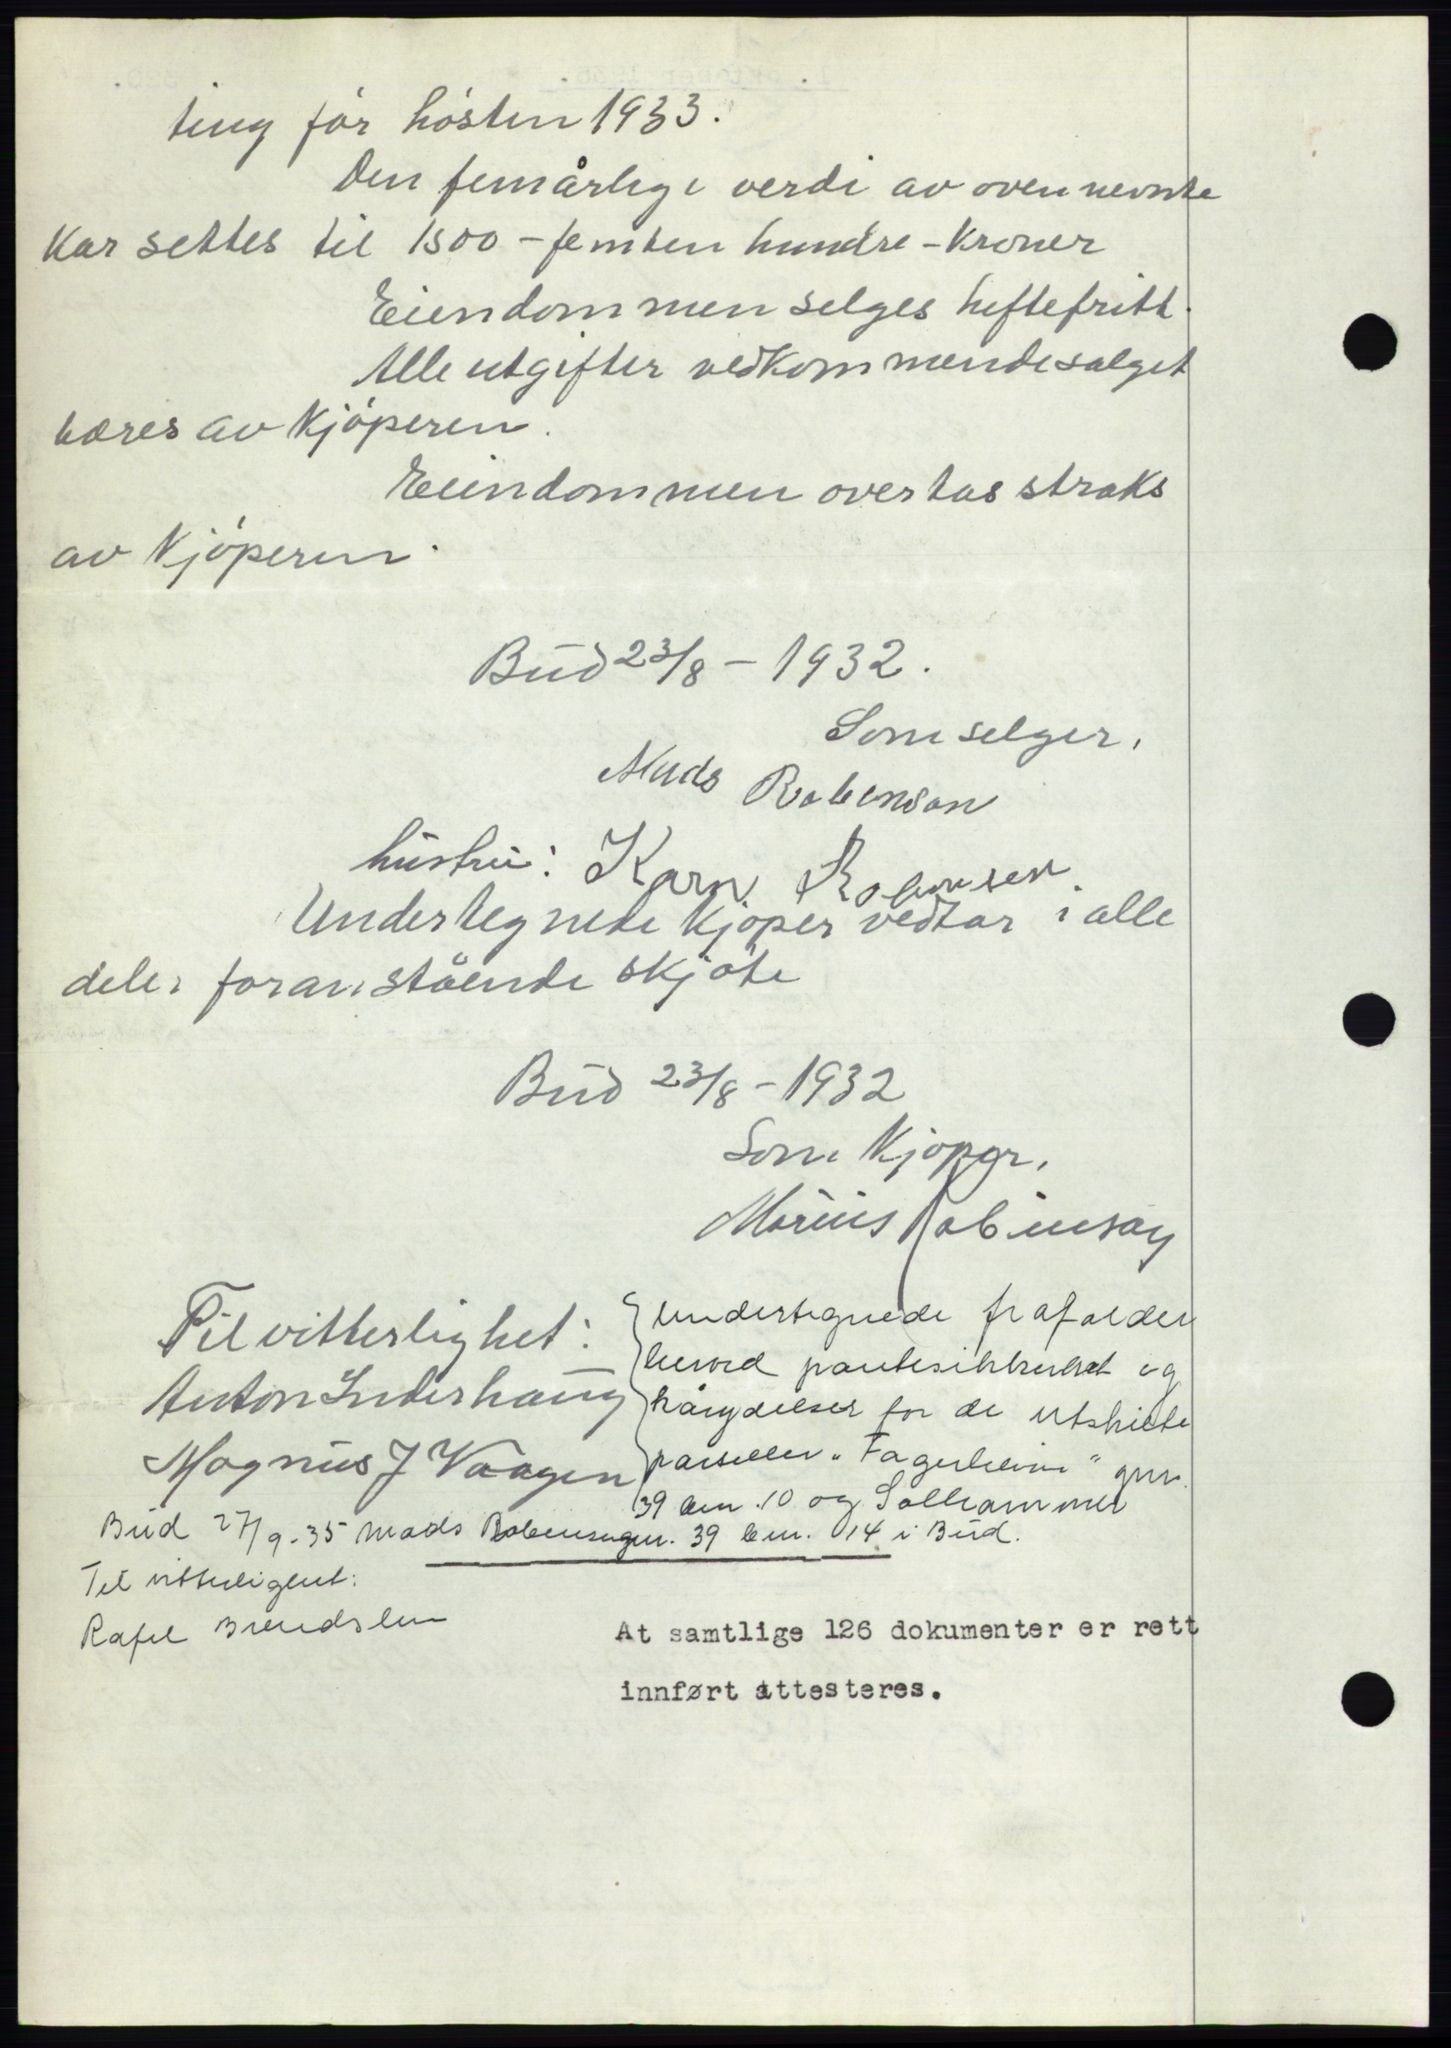 ting før høsten 1933.
Den femårlige verdi av ovennevnte
Kar settes til 1500 - femten hundre - Kroner
Eiendommen selges heftefritt.
Alle utgifter vedkommende salget
bæres av Kjøperen.
Eiendommen overtas straks
av Kjøperen.
Bud 23/8 - 1932.
Som selger,
Mads Robinson
hustru: Karn
Undertegnede Kjøper vedtar i alle
deler foranstående skjøte
Bud 23/8 - 1932
Som Kjøper,
Marius Robinson
Til vitterlighet:
Anton Inderhaug
Magnus J Vaagen
undertegnede frafalder
herved pantesikkerhet og
for de utskilte
parseller „Fagerheim" gnr.
39 bnr. 10 og Solhammer
gnr. 39 bnr. 14 i Bud.
Bud 27/9-35 Mads
Til vitterlighet:
Rafel
At samtlige 126 dokumenter er rett
innført attesteres.